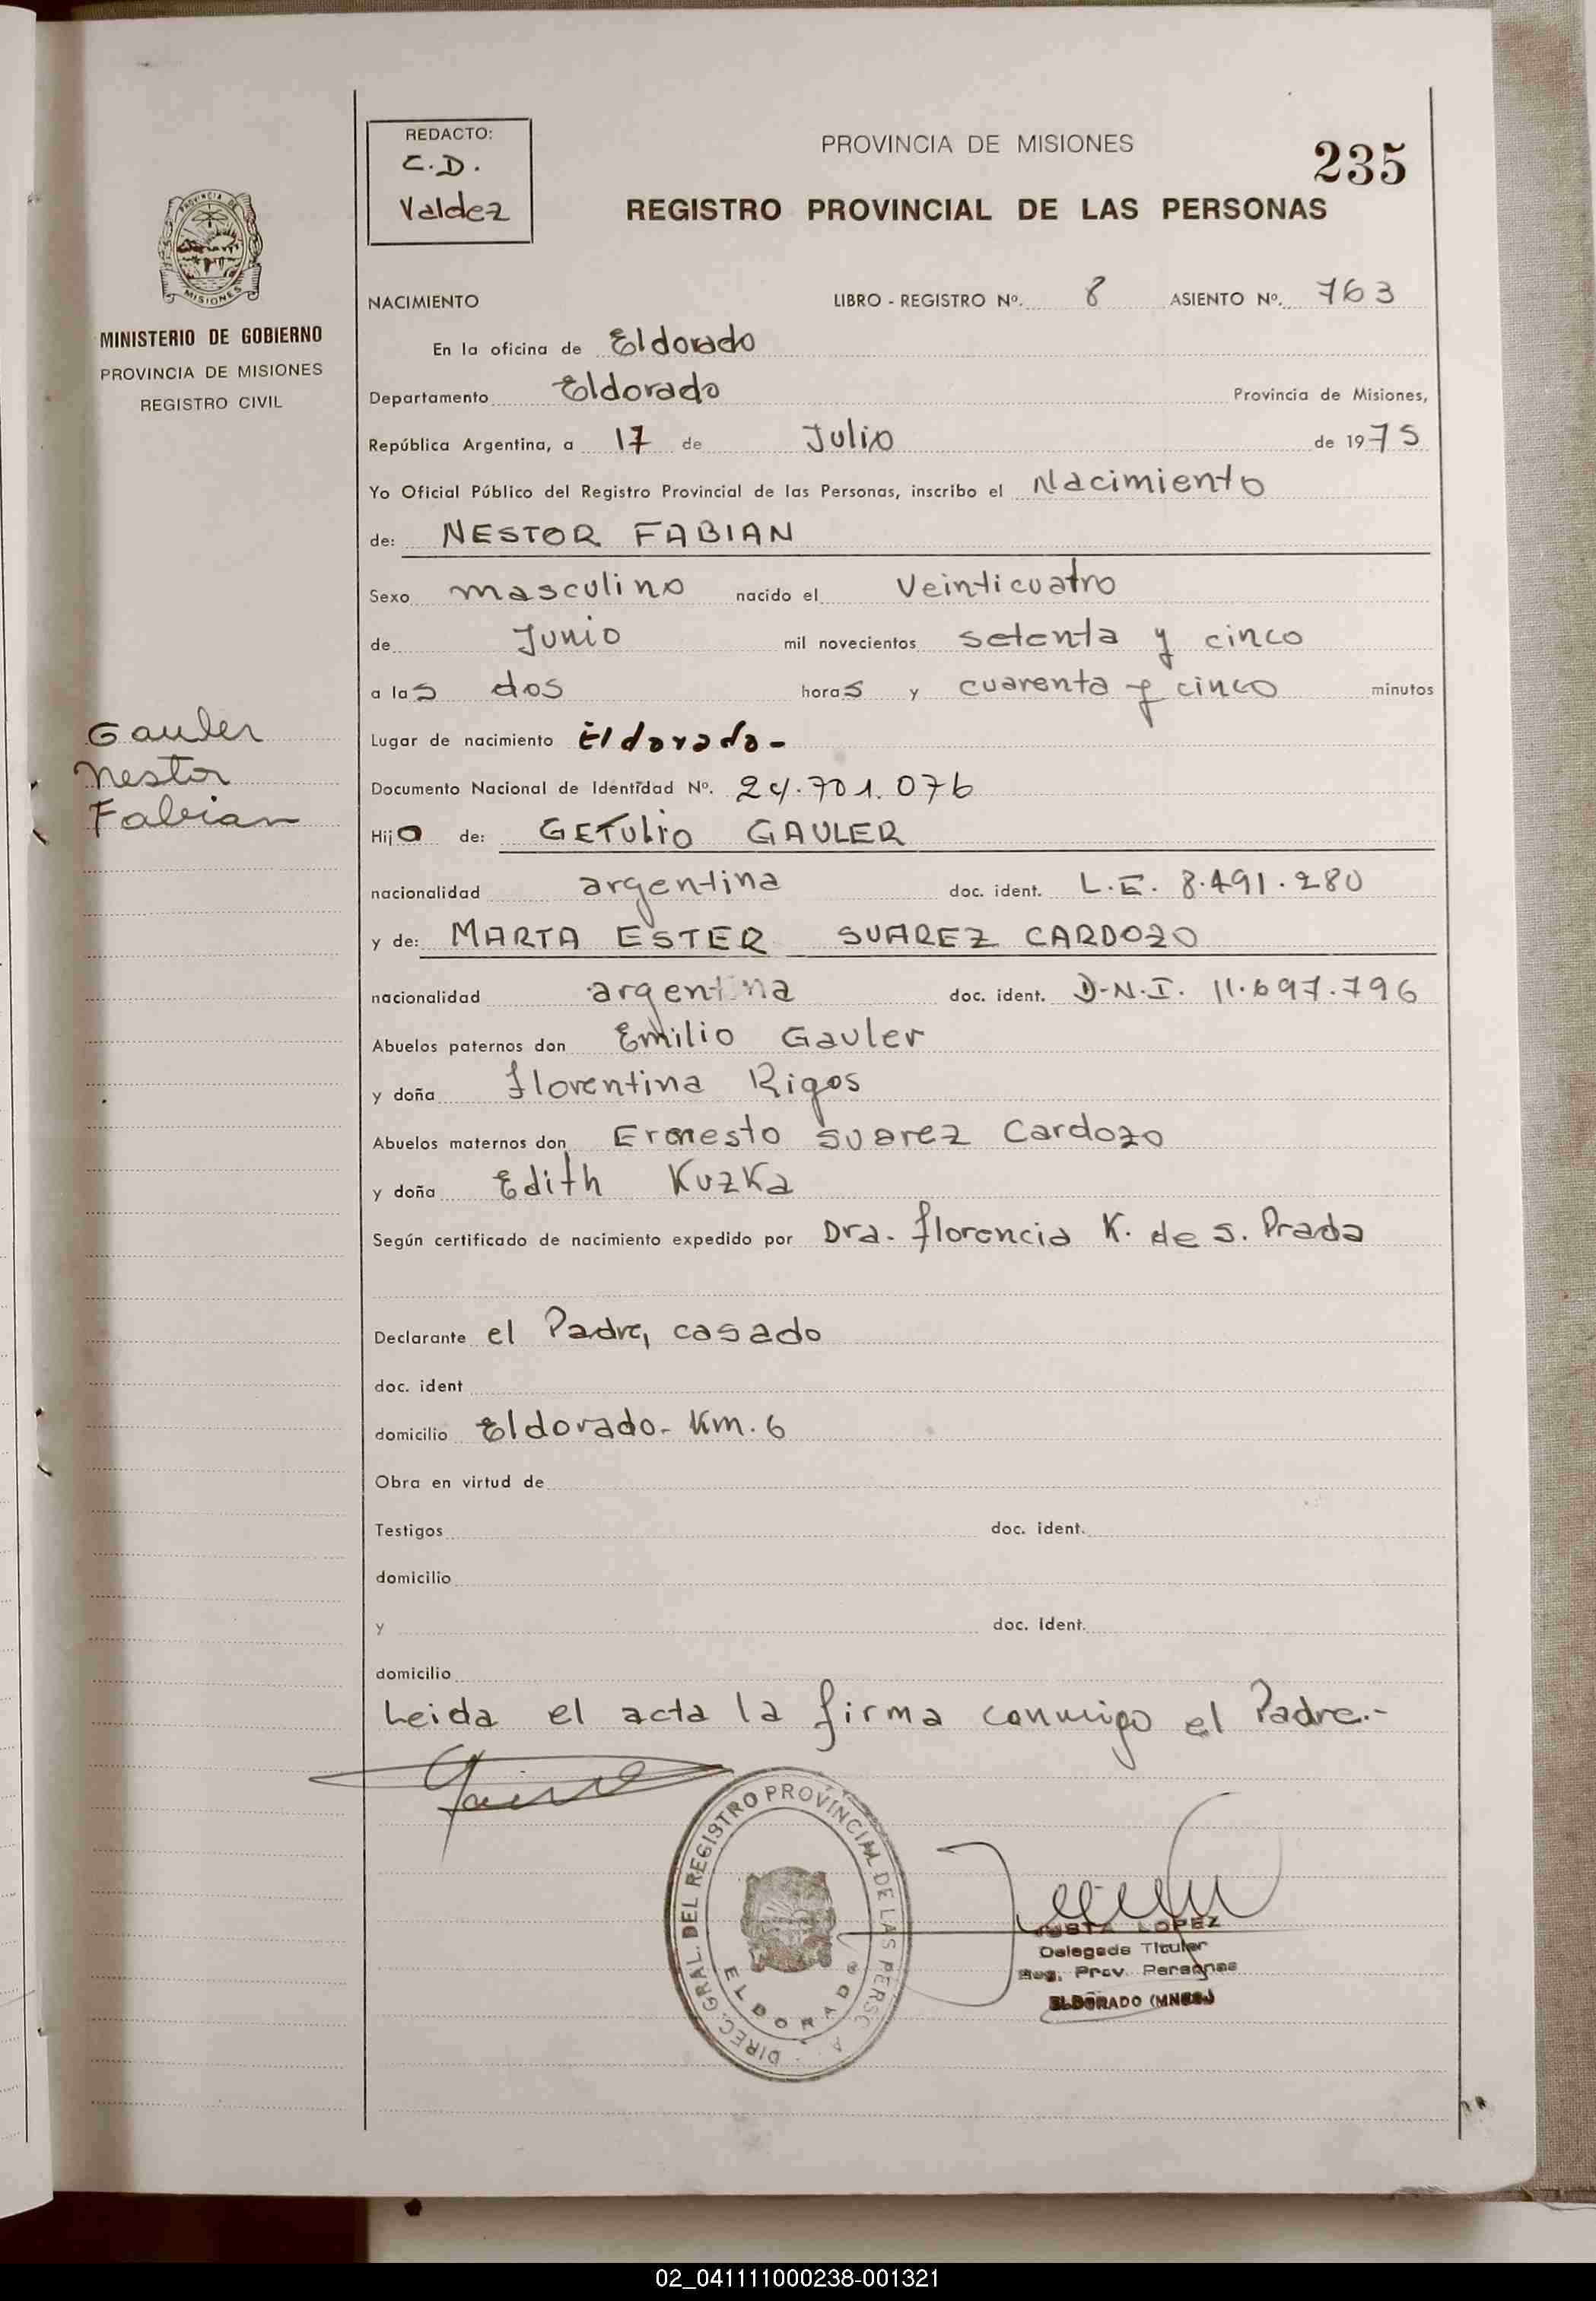 REDACTO:
C.D.
Valdez
PROVINCIA DE MISIONES
235
REGISTRO PROVINCIAL DE LAS PERSONAS
PROVINCIA DE
MISIONES
MINISTERIO DE GOBIERNO
PROVINCIA DE MISIONES
REGISTRO CIVIL
NACIMIENTO LIBRO - REGISTRO Nº. 8 ASIENTO Nº. 763
En la oficina de Eldorado
Departamento Eldorado Provincia de Misiones,
República Argentina, a 17 de Julio de 1975
Yo Oficial Público del Registro Provincial de las Personas, inscribo el Nacimiento
de: NESTOR FABIAN
Sexo masculino nacido el Veinticuatro
de Junio mil novecientos setenta y cinco
a las dos horas y cuarenta y cinco minutos
Gauler
Nestor
Fabian
Lugar de nacimiento Eldorado-
Documento Nacional de Identidad Nº. 24.701.076
Hijo de: GETULIO GAULER
nacionalidad argentina doc. ident. L.E. 8.491.280
y de: MARTA ESTER SUAREZ CARDOZO
nacionalidad argentina doc. ident. D-N.I. 11.697.796
Abuelos paternos don Emilio Gauler
y doña florentina Rigos
Abuelos maternos don Ernesto suarez Cardozo
y doña Edith KuzKa
Según certificado de nacimiento expedido por Dra. florencia K. de S. Prada
Declarante el Padre, casado
doc. ident
domicilio Eldorado- Km. 6
Obra en virtud de
Testigos doc. ident.
domicilio
y doc. ident.
domicilio
Leida el acta la firma conmigo el Padre.-
DIREC. GRAL. DEL REGISTRO PROVINCIAL DE LAS PERSO A
ELDORADO
JUSTA LOPEZ
Delegada Titular
Reg. Prov. Personas
ELDORADO (MNES.)
02_041111000238-001321